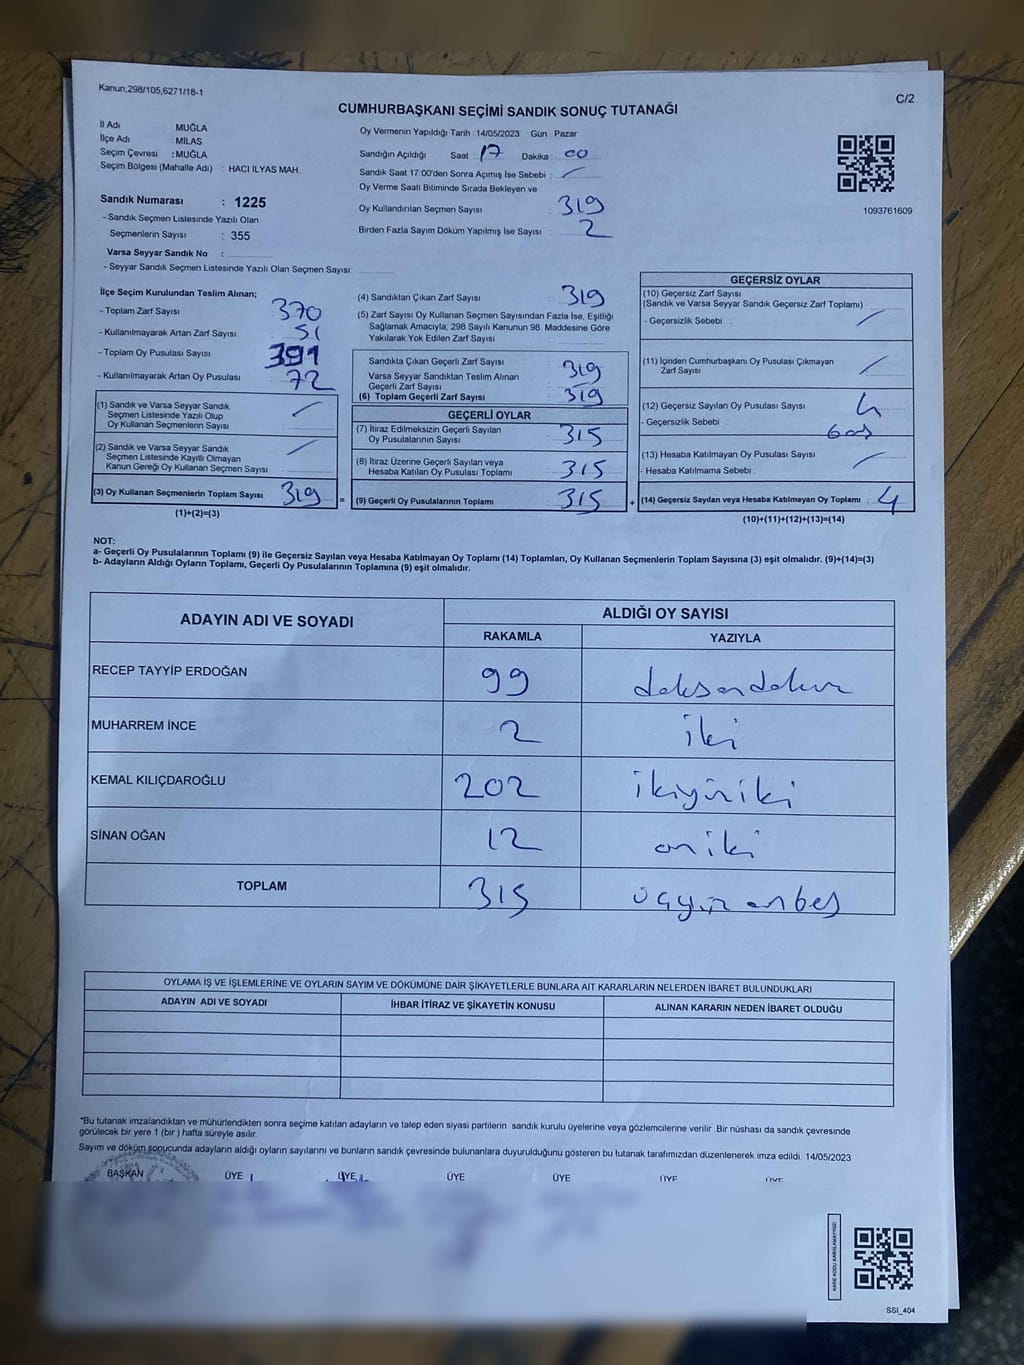 Kanun,298/105,6271/18-1
C/2
CUMHURBAŞKANI SEÇİMİ SANDIK SONUÇ TUTANAĞI
İl Adı : MUĞLA
İlçe Adı : MİLAS
Seçim Çevresi : MUĞLA
Seçim Bölgesi (Mahalle Adı) : HACI İLYAS MAH.
Sandık Numarası : 1225
- Sandık Seçmen Listesinde Yazılı Olan
Seçmenlerin Sayısı : 355
Varsa Seyyar Sandık No :
- Seyyar Sandık Seçmen Listesinde Yazılı Olan Seçmen Sayısı:
Oy Vermenin Yapıldığı Tarih : 14/05/2023 Gün : Pazar
Sandığın Açıldığı Saat : 17 Dakika : 00
Sandık Saat 17:00'den Sonra Açımış İse Sebebi :
Oy Verme Saati Bitiminde Sırada Bekleyen ve
Oy Kullandırılan Seçmen Sayısı : 319
Birden Fazla Sayım Döküm Yapılmış İse Sayısı : 2
1093761609
İlçe Seçim Kurulundan Teslim Alınan;
- Toplam Zarf Sayısı : 370
- Kullanılmayarak Artan Zarf Sayısı : 51
- Toplam Oy Pusulası Sayısı : 391
- Kullanılmayarak Artan Oy Pusulası : 72
(1) Sandık ve Varsa Seyyar Sandık
Seçmen Listesinde Yazılı Olup
Oy Kullanan Seçmenlerin Sayısı :
(2) Sandık ve Varsa Seyyar Sandık
Seçmen Listesinde Kayıtlı Olmayan
Kanun Gereği Oy Kullanan Seçmen Sayısı :
(3) Oy Kullanan Seçmenlerin Toplam Sayısı : 319
(1)+(2)=(3)
=
(4) Sandıktan Çıkan Zarf Sayısı : 319
(5) Zarf Sayısı Oy Kullanan Seçmen Sayısından Fazla İse, Eşitliği
Sağlamak Amacıyla, 298 Sayılı Kanunun 98. Maddesine Göre
Yakılarak Yok Edilen Zarf Sayısı :
Sandıkta Çıkan Geçerli Zarf Sayısı : 319
Varsa Seyyar Sandıktan Teslim Alınan
Geçerli Zarf Sayısı :
(6) Toplam Geçerli Zarf Sayısı : 319
GEÇERLİ OYLAR
(7) İtiraz Edilmeksizin Geçerli Sayılan
Oy Pusulalarının Sayısı : 315
(8) İtiraz Üzerine Geçerli Sayılan veya
Hesaba Katılan Oy Pusulası Toplamı : 315
(9) Geçerli Oy Pusulalarının Toplamı : 315
+
GEÇERSİZ OYLAR
(10) Geçersiz Zarf Sayısı
(Sandık ve Varsa Seyyar Sandık Geçersiz Zarf Toplamı) :
- Geçersizlik Sebebi :
(11) İçinden Cumhurbaşkanı Oy Pusulası Çıkmayan
Zarf Sayısı :
(12) Geçersiz Sayılan Oy Pusulası Sayısı : 4
- Geçersizlik Sebebi : boş
(13) Hesaba Katılmayan Oy Pusulası Sayısı :
- Hesaba Katılmama Sebebi :
(14) Geçersiz Sayılan veya Hesaba Katılmayan Oy Toplamı : 4
(10)+(11)+(12)+(13)=(14)
NOT:
a- Geçerli Oy Pusulalarının Toplamı (9) ile Geçersiz Sayılan veya Hesaba Katılmayan Oy Toplamı (14) Toplamları, Oy Kullanan Seçmenlerin Toplam Sayısına (3) eşit olmalıdır. (9)+(14)=(3)
b- Adayların Aldığı Oyların Toplamı, Geçerli Oy Pusulalarının Toplamına (9) eşit olmalıdır.
ADAYIN ADI VE SOYADI ALDIĞI OY SAYISI
RAKAMLA YAZIYLA
RECEP TAYYİP ERDOĞAN 99 doksandokuz
MUHARREM İNCE 2 iki
KEMAL KILIÇDAROĞLU 202 ikiyüziki
SİNAN OĞAN 12 oniki
TOPLAM 315 üçyüz onbeş
OYLAMA İŞ VE İŞLEMLERİNE VE OYLARIN SAYIM VE DÖKÜMÜNE DAİR ŞİKAYETLERLE BUNLARA AİT KARARLARIN NELERDEN İBARET BULUNDUKLARI
ADAYIN ADI VE SOYADI İHBAR İTİRAZ VE ŞİKAYETİN KONUSU ALINAN KARARIN NEDEN İBARET OLDUĞU
*Bu tutanak imzalandıktan ve mühürlendikten sonra seçime katılan adayların ve talep eden siyasi partilerin sandık kurulu üyelerine veya gözlemcilerine verilir .Bir nüshası da sandık çevresinde
görülecek bir yere 1 (bir ) hafta süreyle asılır.
Sayım ve döküm sonucunda adayların aldığı oyların sayılarını ve bunların sandık çevresinde bulunanlara duyurulduğunu gösteren bu tutanak tarafımızdan düzenlenerek imza edildi. 14/05/2023
BAŞKAN ÜYE ÜYE ÜYE ÜYE ÜYE ÜYE
KARE KODU KARALAMAYINIZ!
SSI_404